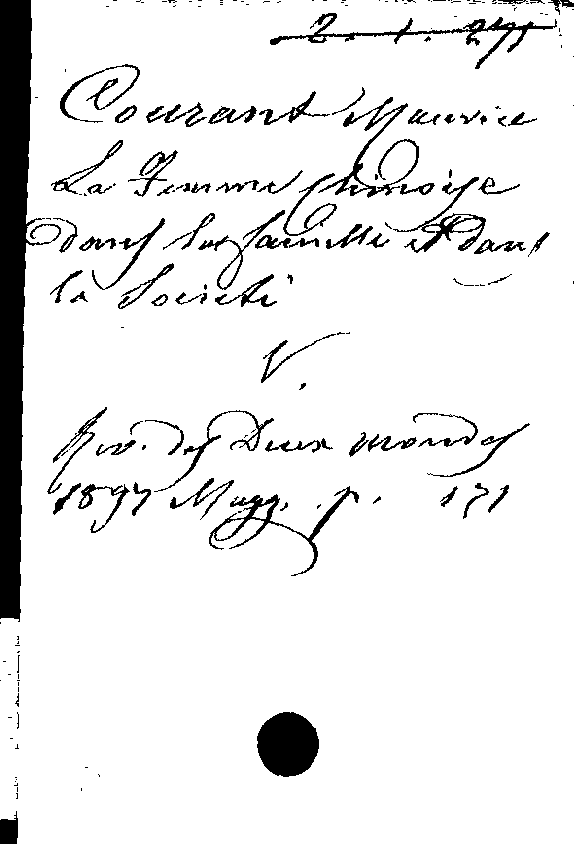 2. 1. 271
Courant Maurice
La Femme Chinoise
dans la famille et dans
la Societé
V.
Rev. des Deux mondes
1897 Magg. p. 171